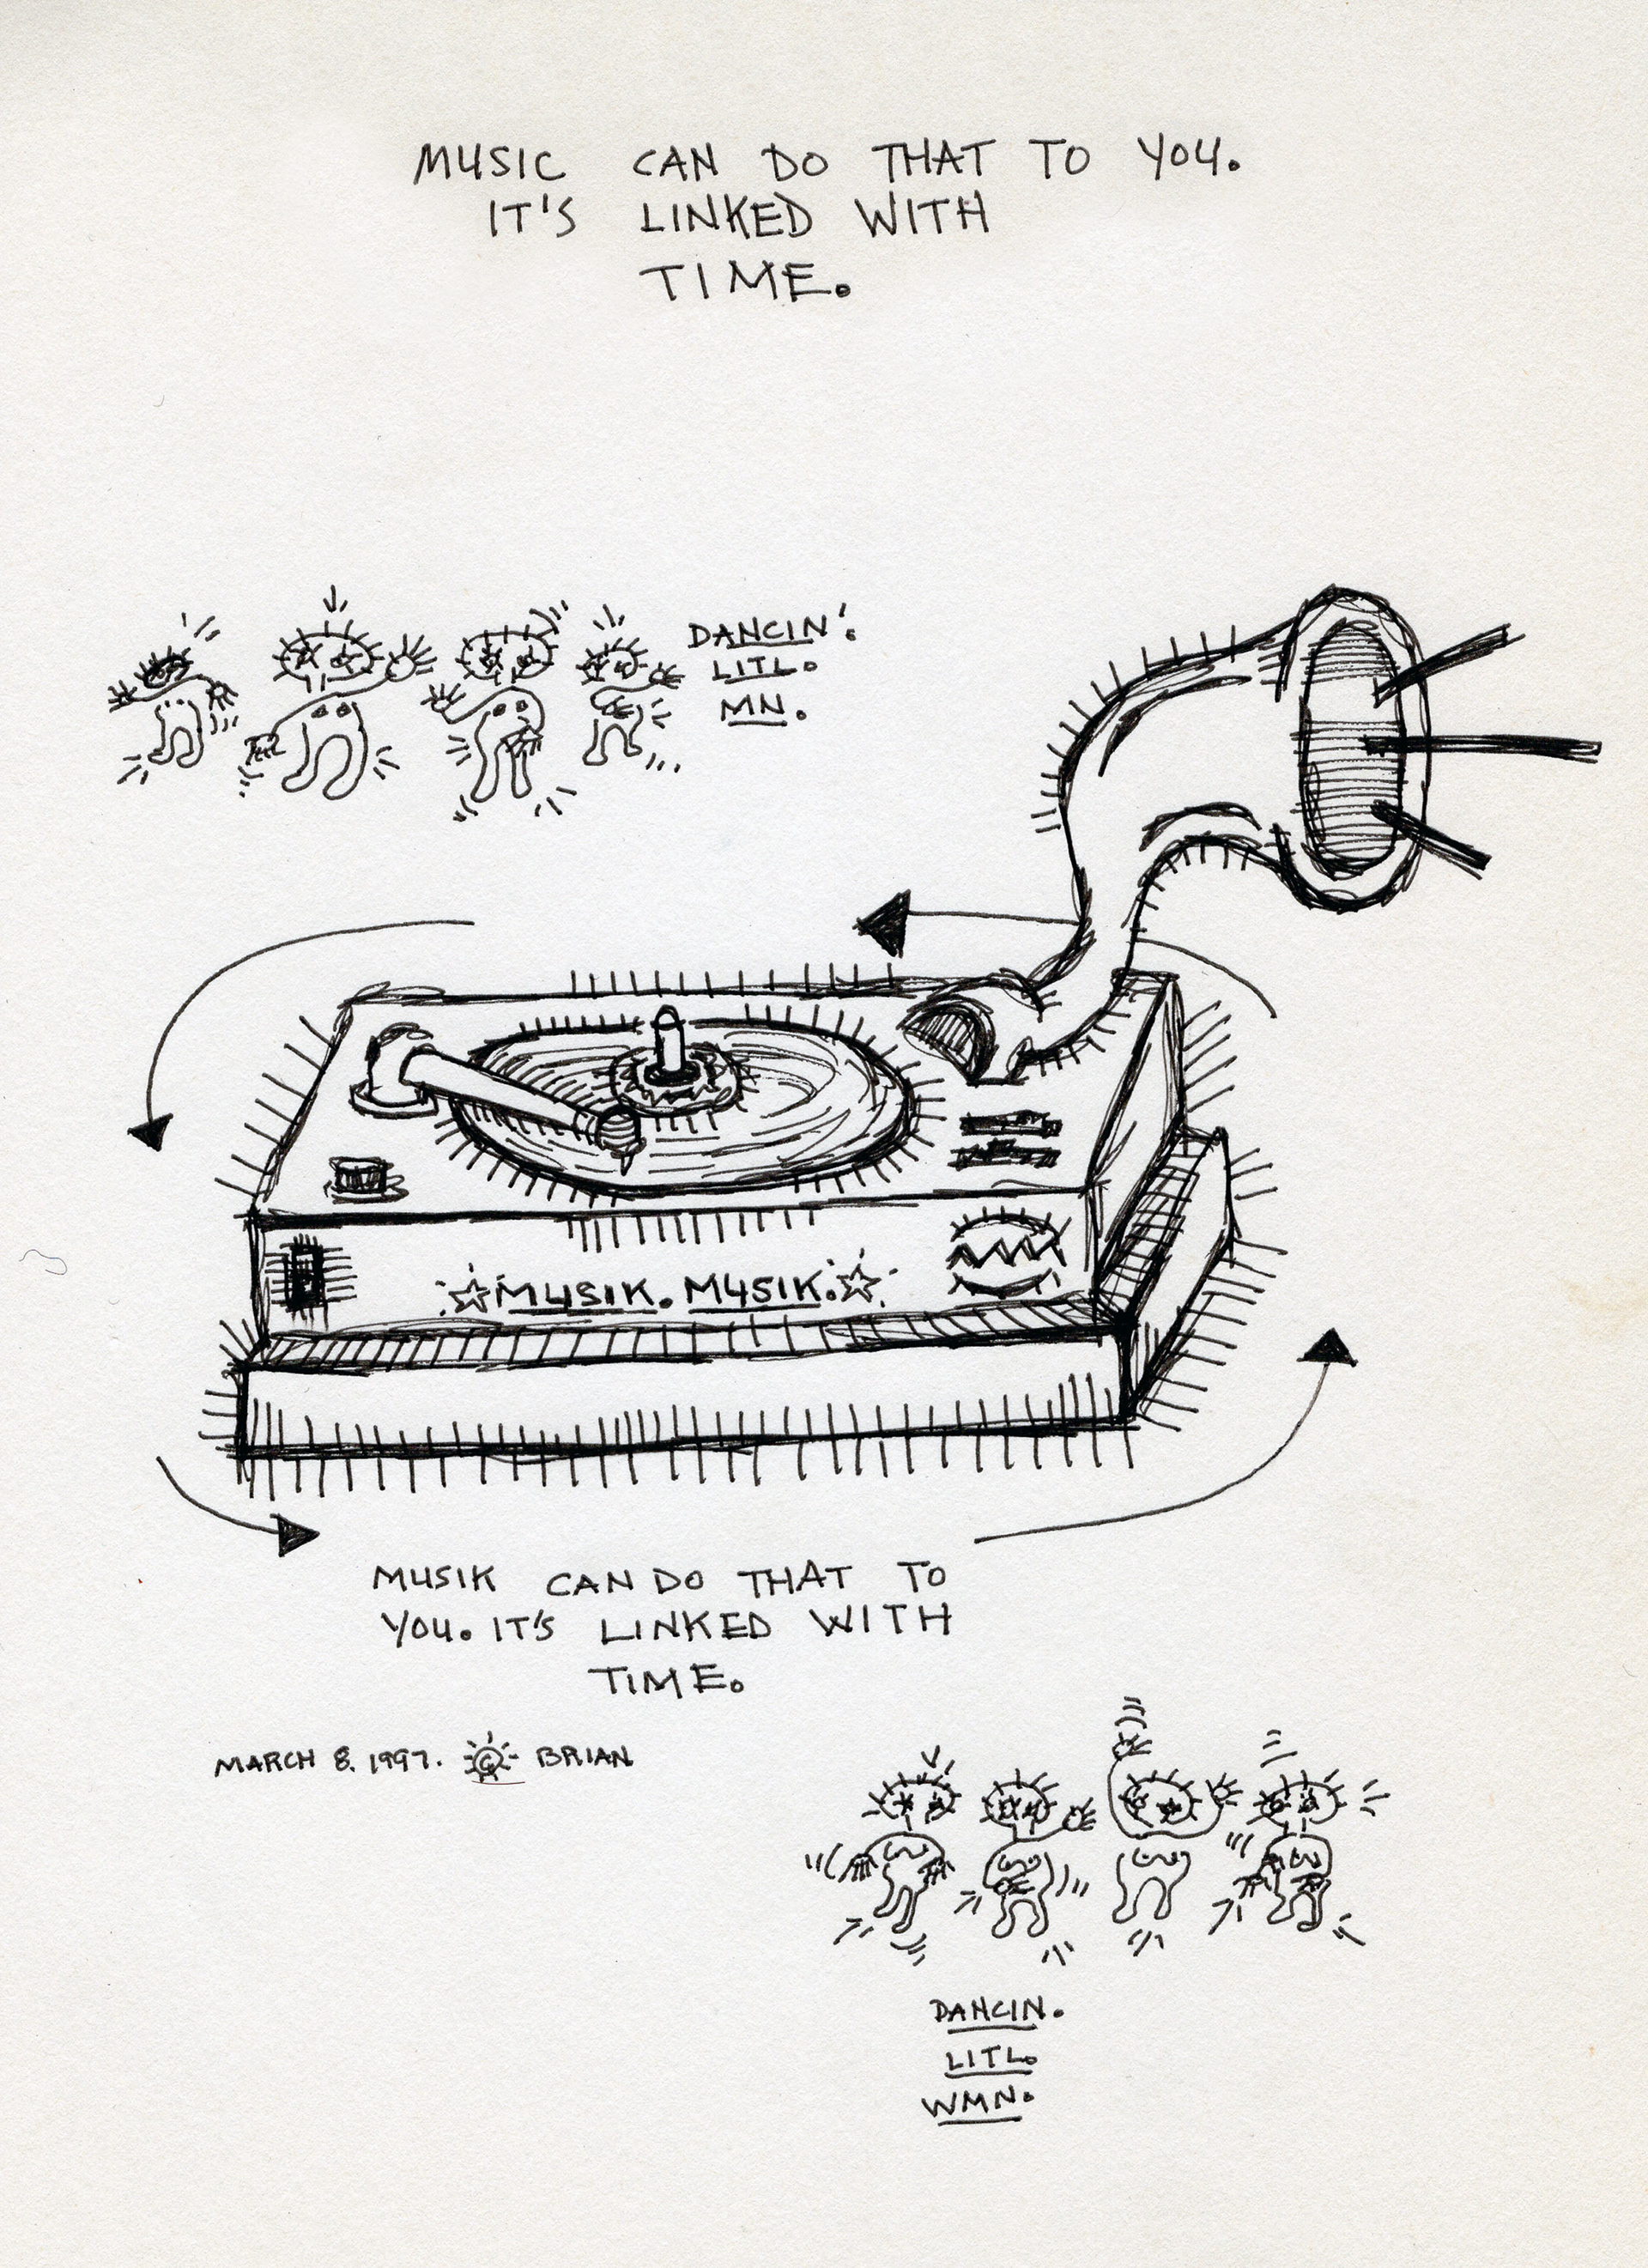 MUSIC CAN DO THAT TO YOU.
IT'S LINKED WITH
TIME.
DANCIN'.
LITL.
MN.
MUSIK. MUSIK.
MUSIK CAN DO THAT TO
YOU. IT'S LINKED WITH
TIME.
MARCH 8. 1997. © BRIAN
DANCIN.
LITL.
WMN.